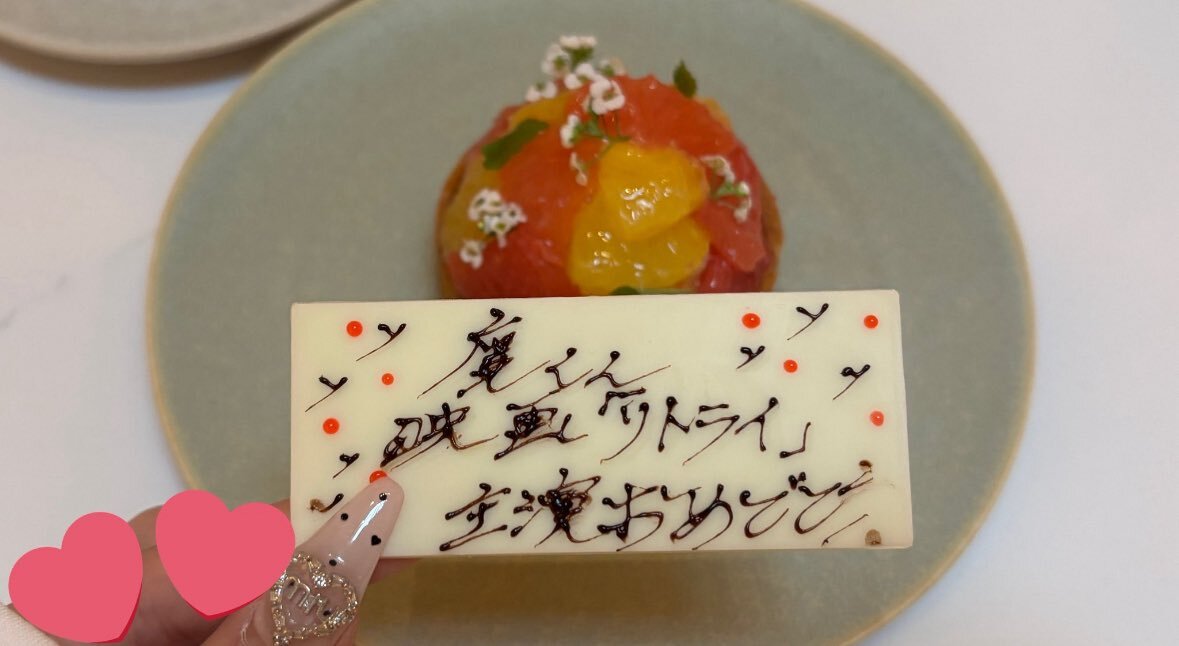 庵くん
映画「リトライ」
主演おめでとう